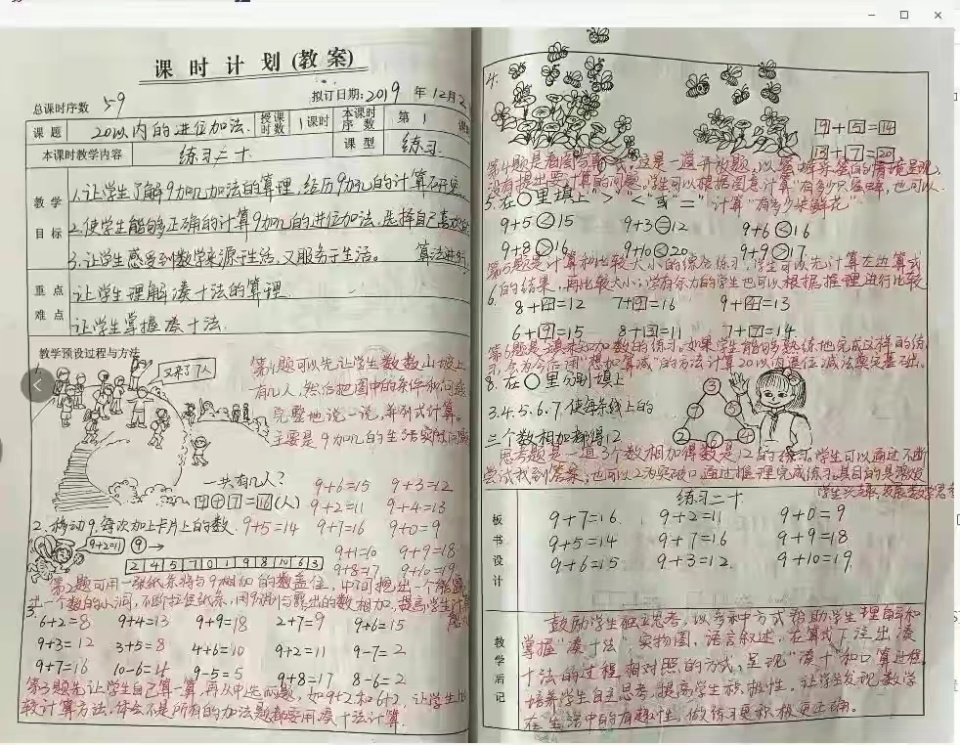 课时计划(教案)
总课时序数 59 拟订日期:2019年12月2
课题 20以内的进位加法. 授课时数 1课时 本课时序数 第1
本课时教学内容 练习二十 课型 练习.
教学目标
1.让学生了解9加几加法的算理,经历9加几的计算
2.使学生能够正确的计算9加几的进位加法,选择自己喜欢的
算法进行
3.让学生感受到数学来源于生活,又服务于生活。
重点 让学生理解凑十法的算理
难点 让学生掌握凑十法.
教学预设过程与方法
又来了7人
第1题可以先让学生数数,山坡上
有几人,然后把图中的条件和问题
完整地说一说,并列式计算。
主要是9加几的生活实际问题
一共有几人?
9+7=16(人)
9+6=15 9+3=12
9+2=11 9+4=13
2.移动9.每次加上卡片上的数. 9+5=14 9+7=16 9+0=9
9+1=10 9+9=18
9+8=17 9+10=19
9+2=11 9→
2 4 5 7 0 1 9 8 10 6 3
第2题可用一张纸条将与9相加的数盖住,中间挖出一个
一个数的小洞,不断拉但纸条,用9 与露出的数相加,提高学生计算
3.
6+2=8 9+4=13 9+9=18 2+7=9 9+6=15
9+3=12 3+5=8 4+6=10 9+2=11 9-7=2
9+7=16 10-6=4 9-5=5 9+8=17 8-6=2
第3题先让学生自己算一算,再从中选两题,如9+2和6+2,让学生比
较计算方法,体会不是所有的加法题都要用凑十法计算
4.
9+5=14
13+7=20
第4题是看图写算式,这是一道开放题,以蜜蜂采蜜的情境呈现,
没有提出要计算的问题,学生可以根据图意计算“有多少只蜜蜂,也可以
计算“有多少朵鲜花”.
5.在○里填上“>”“<”或“=”
9+5<15 9+3=12 9+6<16
9+8>16 9+10<20 9+9>17
第5题是计算和比较大小的综合练习,学生可以先计算左边算式
的结果,再比较大小;学有余力的学生也可以根据推理进行比较
6.
8+4=12 7+9=16 9+4=13
6+9=15 8+3=11 7+7=14
第6题是 加数的练习.如果学生能够熟练地完成这样的练
习,会为今后用“想加算减”的方法计算20以内退位减法奠定基础.
8.在○里分别填上
3.4.5.6.7,使每条线上的
三个数相加都得12
3
7 5
2 6 4
思考题是一道3个数相加得数是12的练习,学生可以通过不断
尝试找到答案,也可以2为突破口,通过推理完成练习.其目的是激发
学生兴趣,发展数学思
板书设计
练习二十
9+7=16 9+2=11 9+0=9
9+5=14 9+7=16 9+9=18
9+6=15 9+3=12. 9+10=19.
教学后记
鼓励学生独立思考,以多种方式帮助学生理解和
掌握“凑十法”实物图,语言叙述,在算式下注出凑
十法的过程相对照的方式,呈现“凑十”和口算过程.
培养学生自主思考,提高学生积极性.让学生发现数学
在生活中的有趣性,做练习更积极更正确。